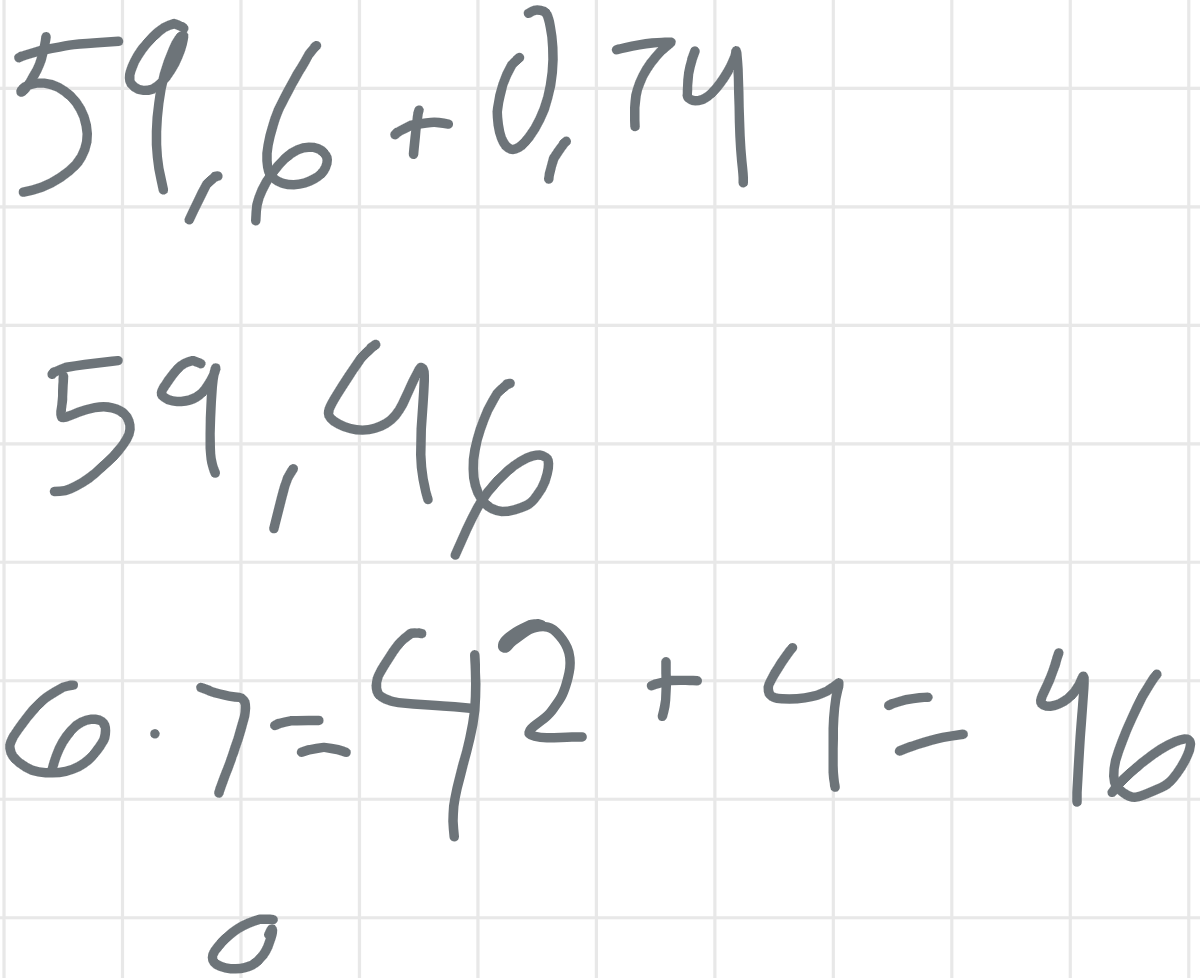 59,6 + 0,74
59,46
6 · 7 = 42 + 4 = 46
0